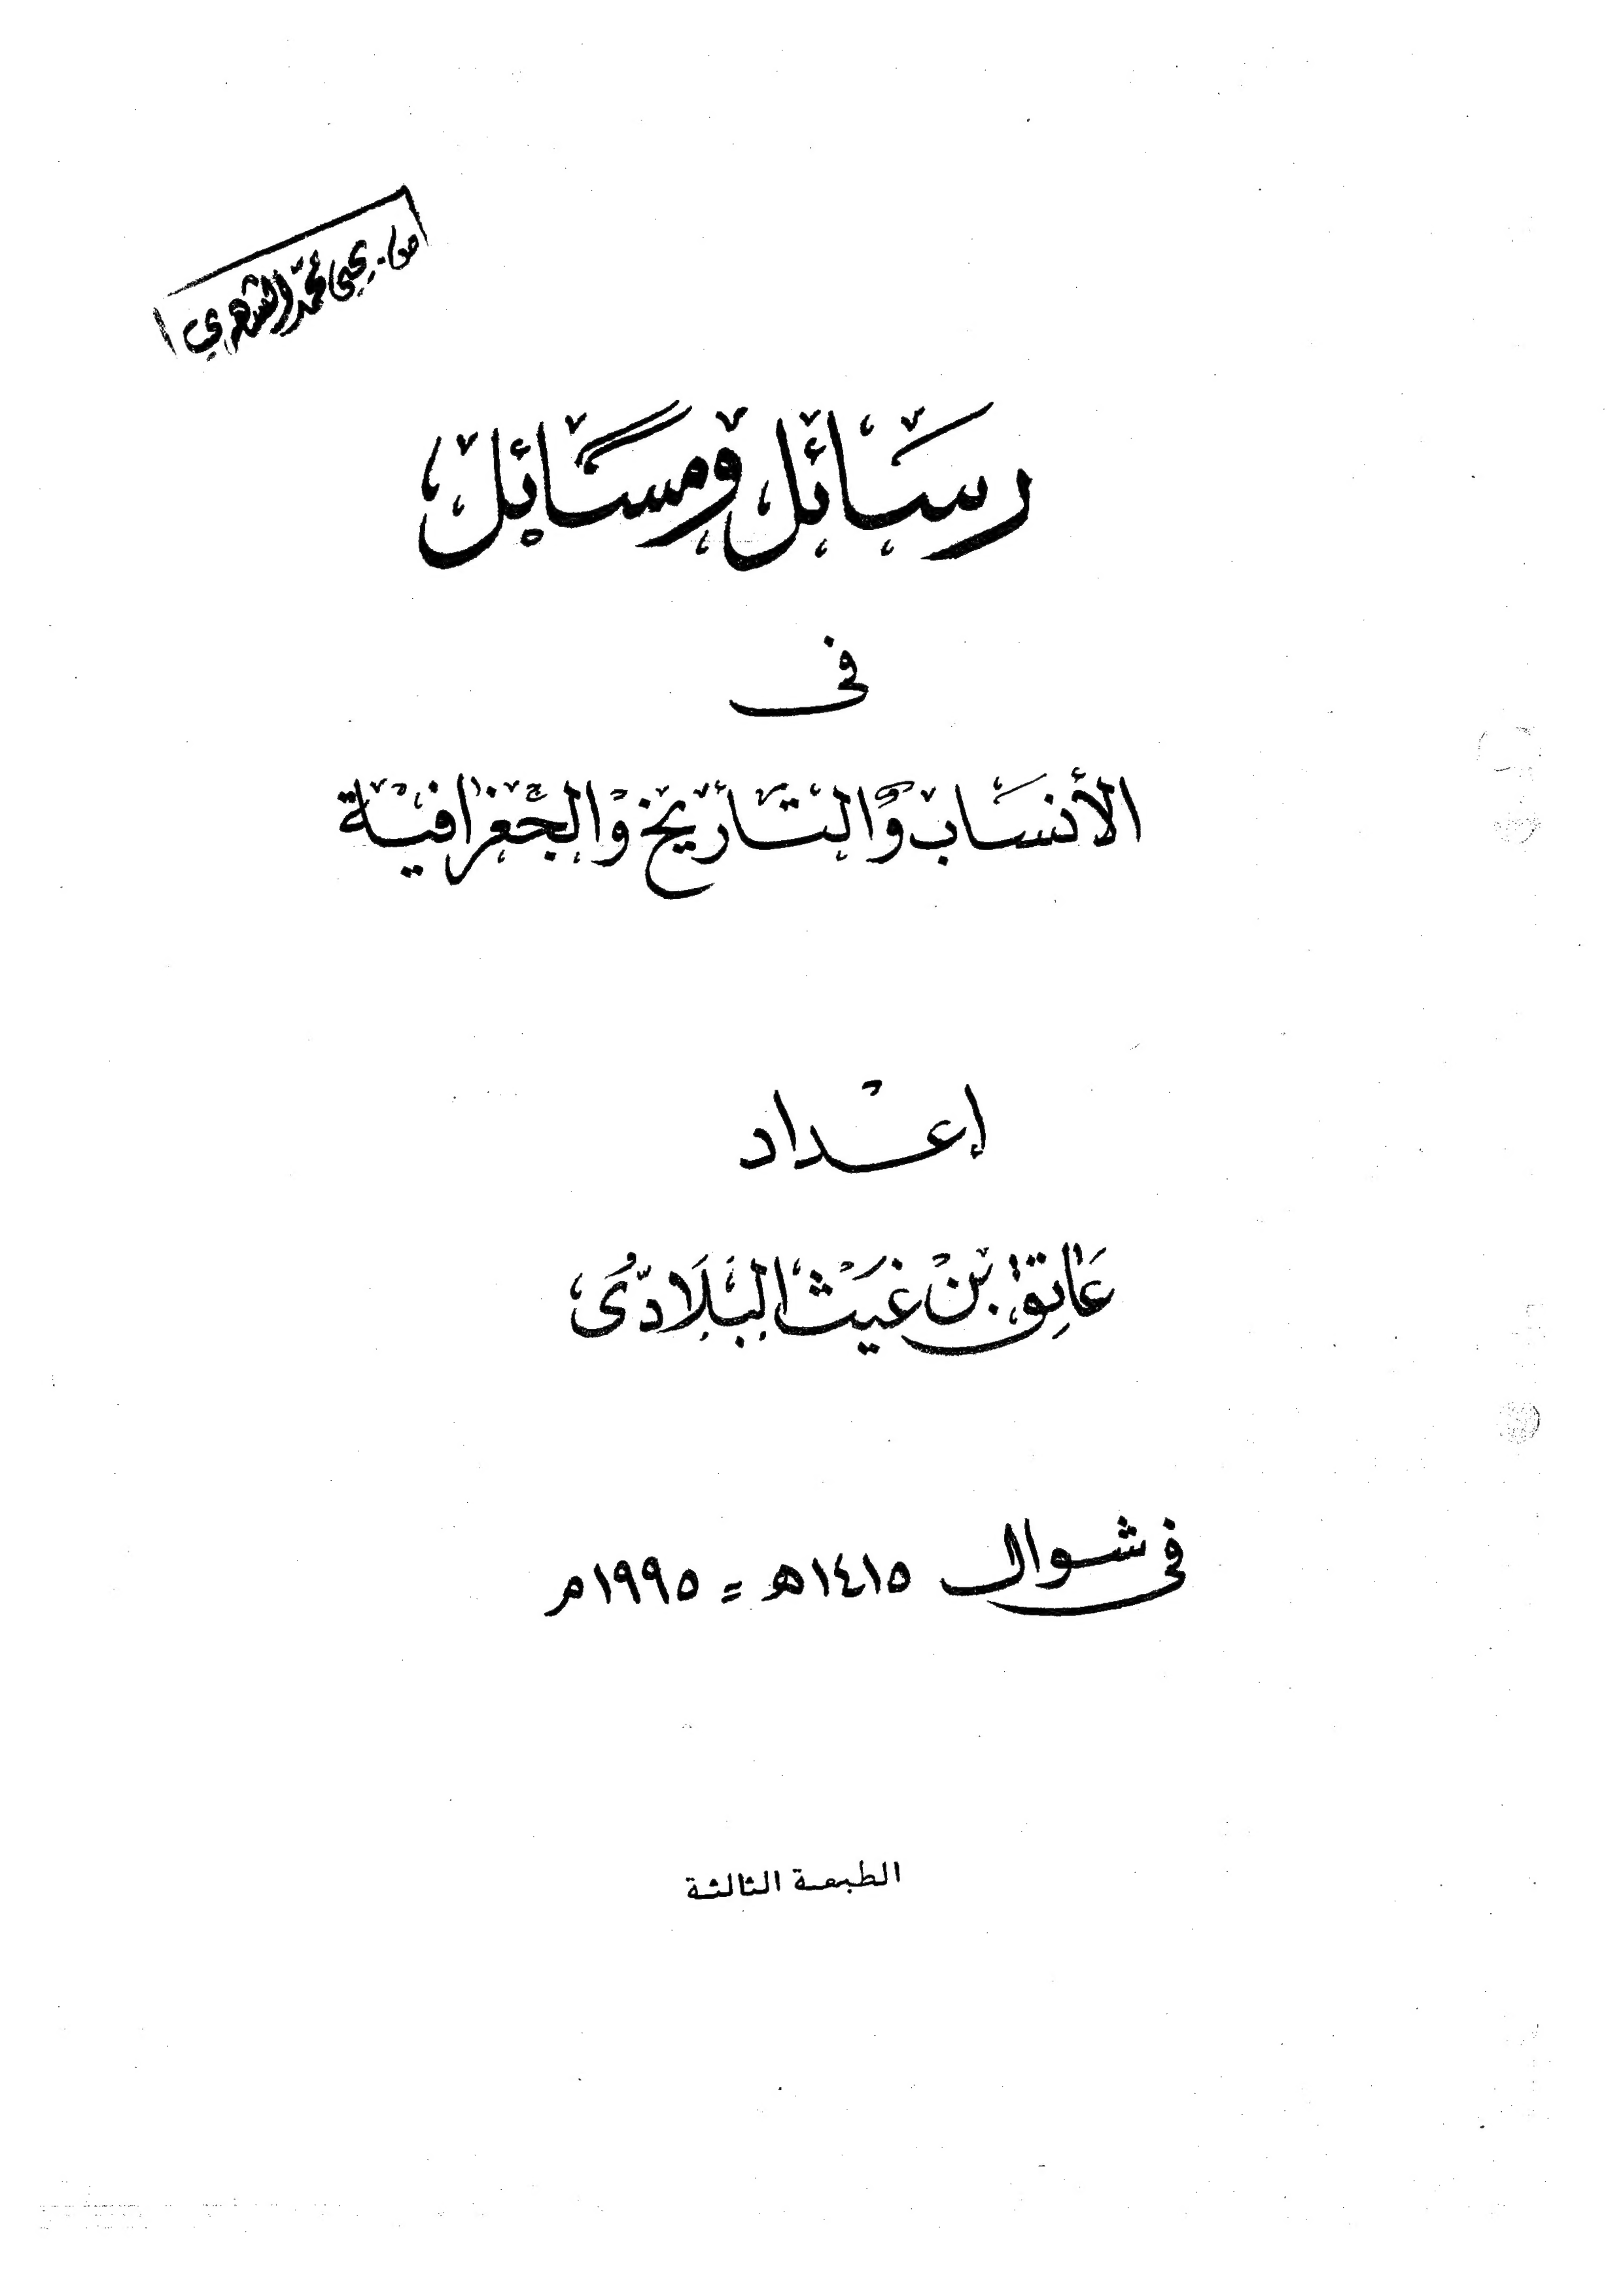 يحيى محمد الشهري
رسائل ومسائل
فى
الأنساب والتاريخ والجغرافية
إعداد
عاتق بن غيث البلادى
فى شوال ١٤١٥ھ = ١٩٩٥م
الطبعة الثالثة